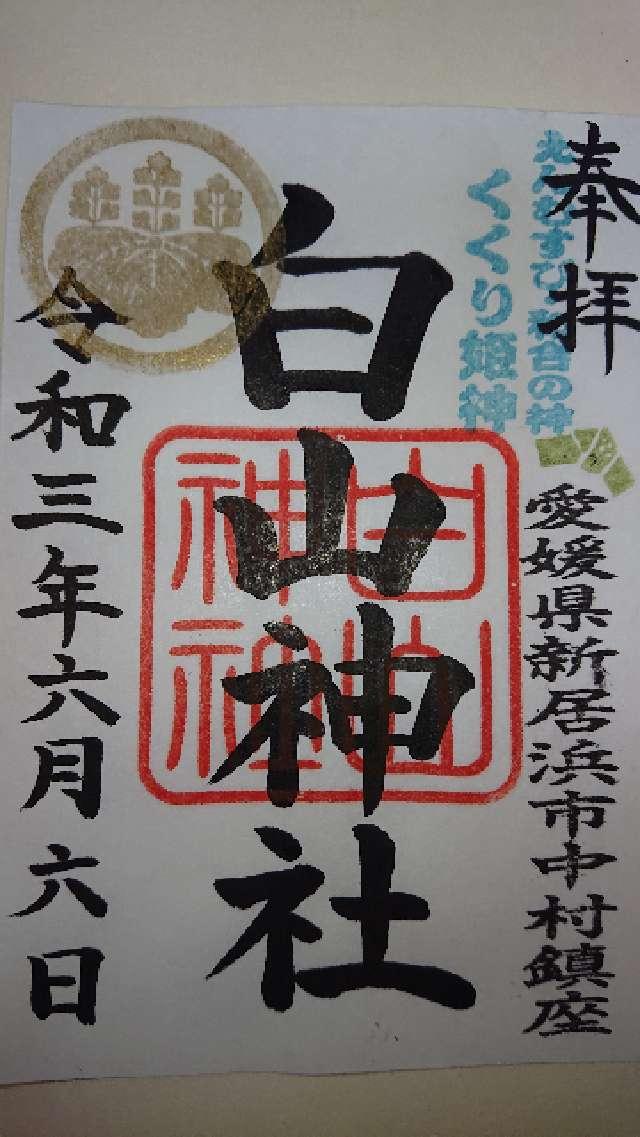 奉拝
えんむすび 和合の神
くくり姫神
愛媛県新居浜市中村鎮座
白山神社
白山
神社
令和三年六月六日